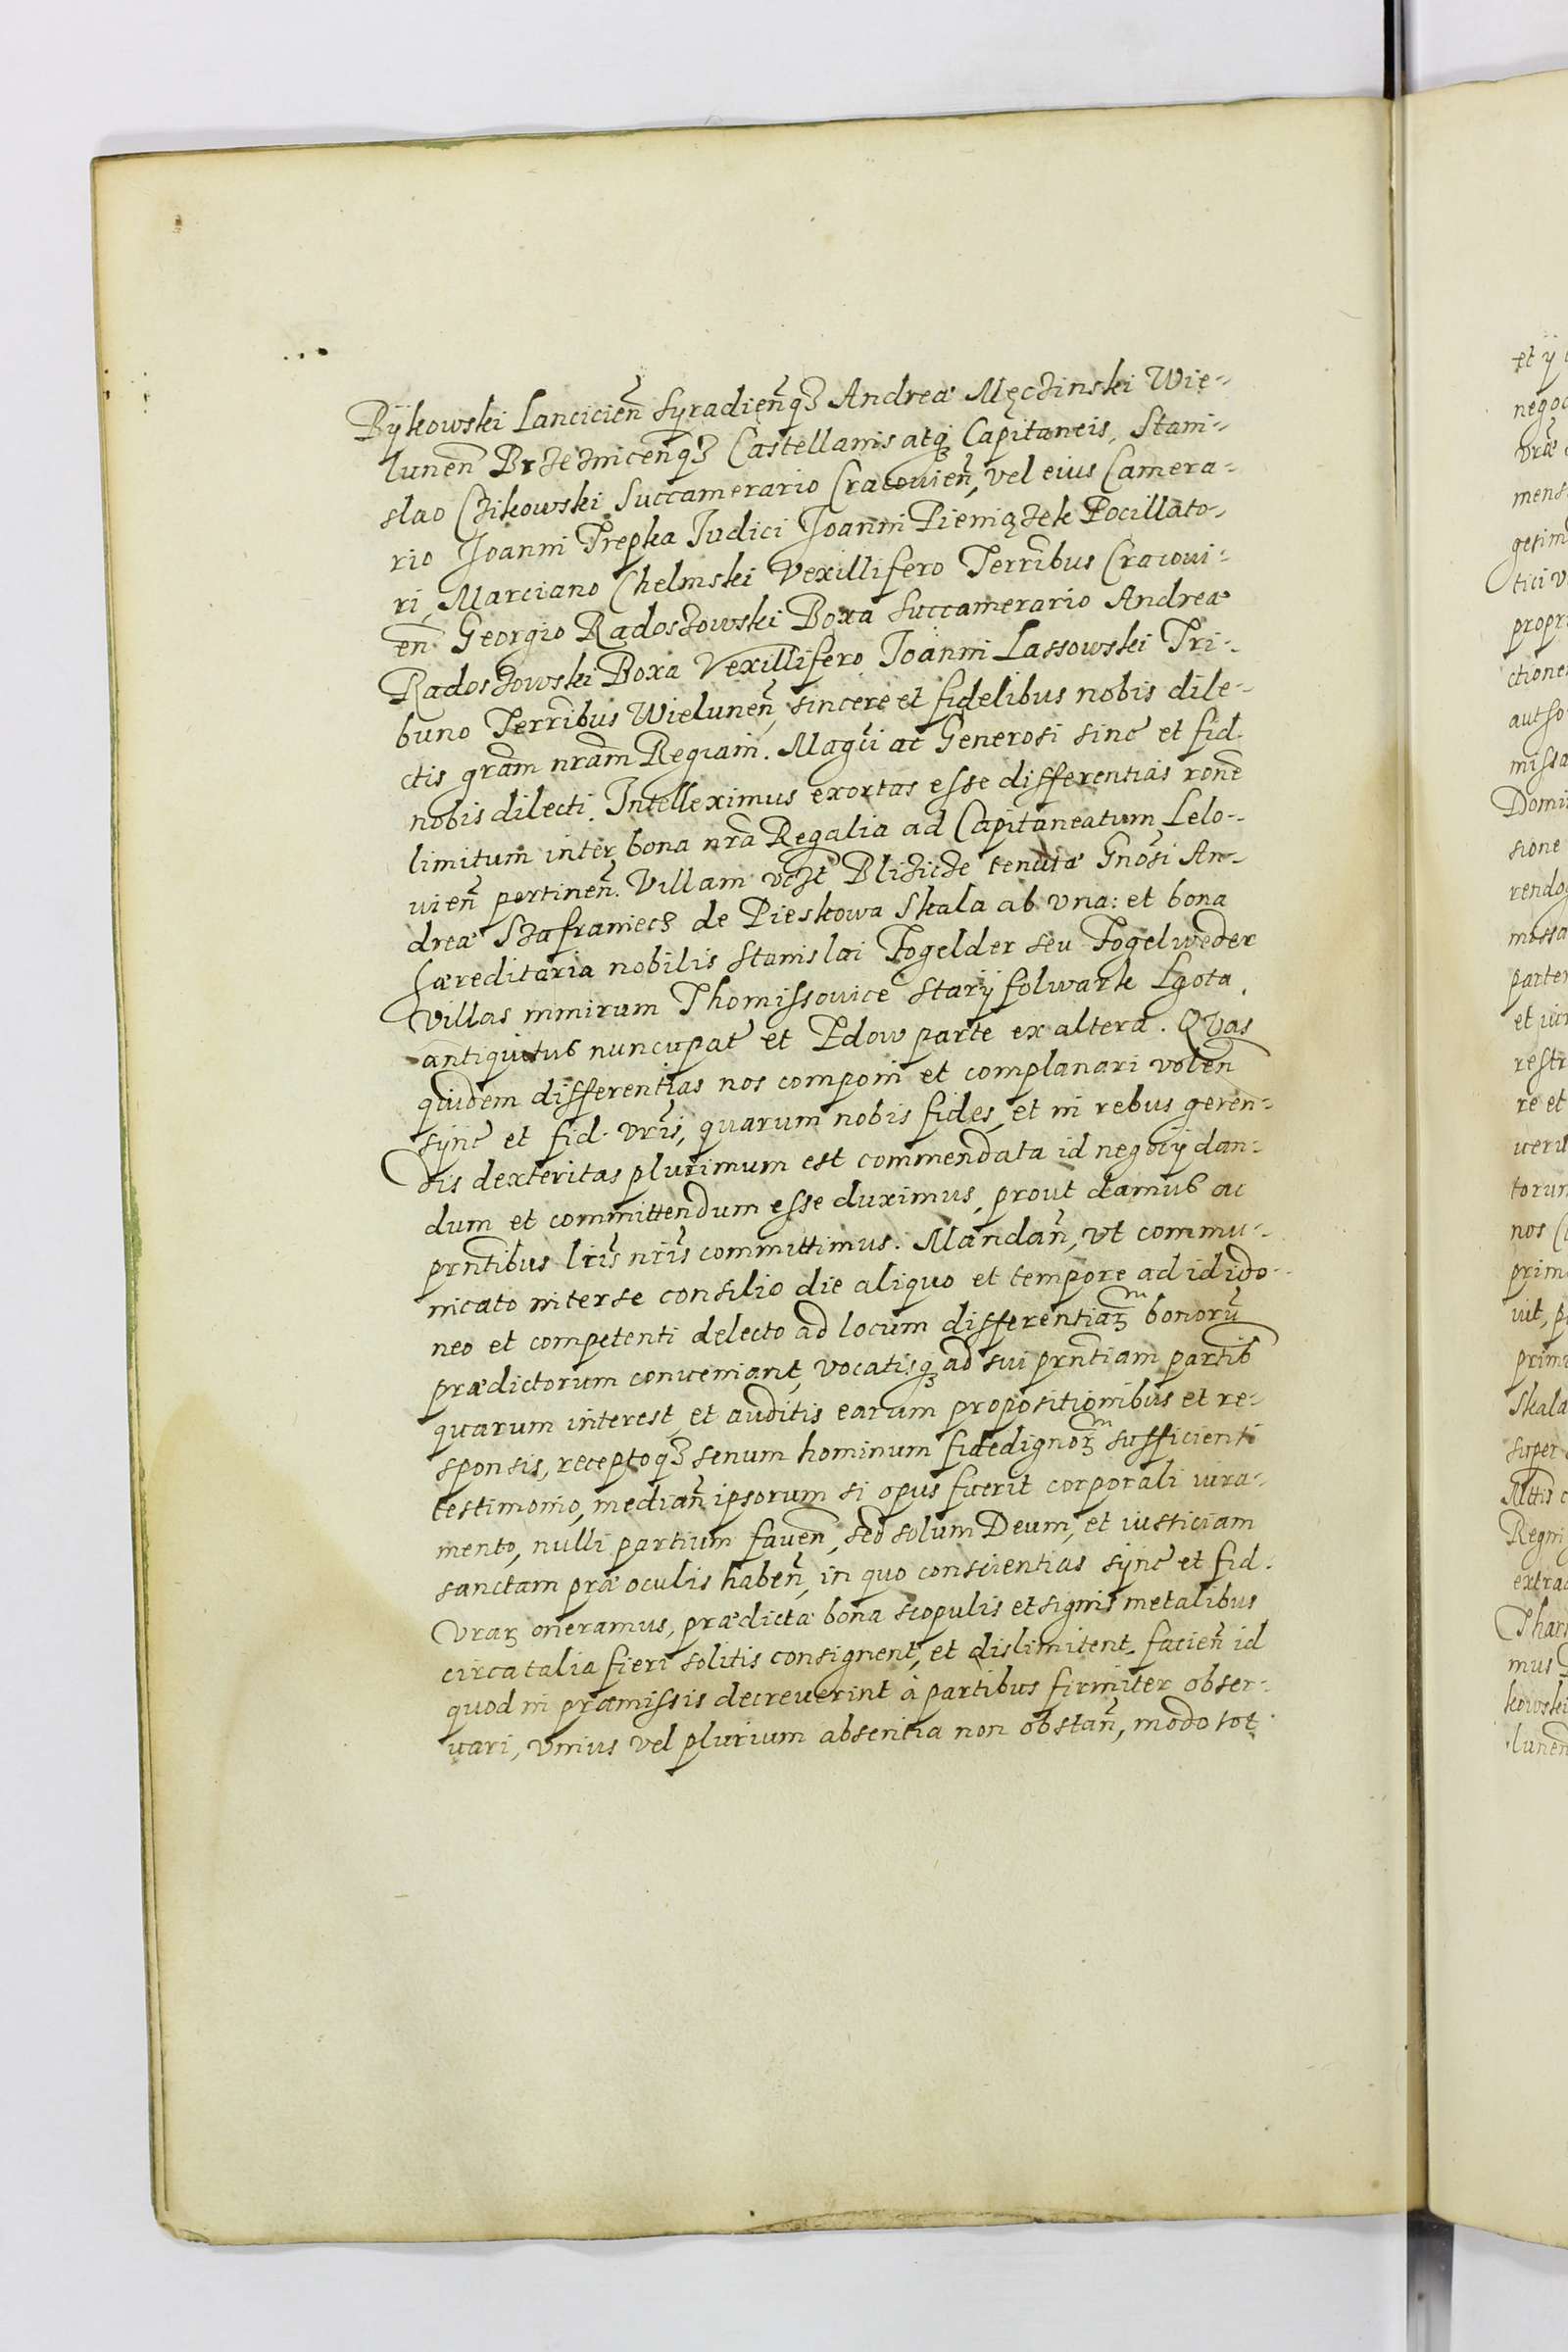 Bÿkowski Lancicien̄ Syradien̄qꝫ Andreæ Męczinski Wie-
lunen̄ Brzeznicen̄qꝫ Castellanis atqꝫ Capitaneis, Stani-
slao Czikowski Succamerario Cracouien̄, vel eius Camera-
rio Joanni Trepka Iudici Joanni Pieniązek Pocillato-
ri, Marciano Chelmski Vexillifero Terrībus Cracoui-
en̄ Georgio Radoszowski Boxa Succamerario Andreæ
Radoszowski Boxa Vexillifero Joanni Lassowski Tri-
buno Terrībus Wielunen̄, sincere et fidelibus nobis dile-
ctis grām nrām Regiam. Magc̄i ac Generosi sinc̄ et fid.
nobis dilecti. Intelleximus exortas esse differentias rōne
limitum inter bona nrā Regalia ad Capitaneatum Lelo-
uien̄ pertinen̄. Villam vczt̄ Blizicze tenutæ Gnōsi An-
dreæ Szafraniecz de Pieskowa Skala ab vna: et bona
hæreditaria nobilis Stanislai Fogelder seu Fogelweder
Villas nimirum Thomissouice Starÿ folwark Lgota
antiquitus nuncupat̄ et Pdow parte ex altera. Quas
quidem differentias nos componi et complanari volen̄
sÿnc̄ et fid. vrīs, quarum nobis fides, et in rebus geren-
dis dexteritas plurimum est commendata id negocÿ dan-
dum et committendum esse duximus, prout damus ac
prn̄tibus lrīs nrīs committimus. Mandan̄, vt commu-
nicato interse consilio die aliquo et tempore ad id ido-
neo et competenti delecto ad locum differentiarꝫ bonorū
prædictorum conueniant, vocatisqꝫ ad sui prn̄tiam partib
quarum interest, et auditis earum propositionibus et re-
sponsis, receptoqꝫ senum hominum fidedignorꝫ sufficienti
testimonio, median̄ ipsorum si opus fuerit corporali iura-
mento, nulli partium fauen̄, sed solum Deum, et iusticiam
sanctam præ oculis haben̄, in quo conscientias sÿnc̄ et fid.
Vrarꝫ oneramus, prædicta bona scopulis et signis metalibus
circa talia fieri solitis consignent, et dislimitent, facien̄ id
quod in præmissis decreuerint à partibus firmiter obser-
uari, vnius vel plurium absentia non obstan̄, modo tot